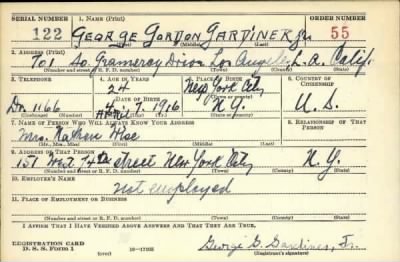 SERIAL NUMBER 1. NAME (Print) ORDER NUMBER
122 GEORGE GORDON GARDINER Jr. 55
(First) (Middle) (Last)
2. ADDRESS (Print)
701 So. Gramercy Drive Los Angeles L.A. Calif.
(Number and street or R. F. D. number) (Town) (County) (State)
3. TELEPHONE 4. AGE IN YEARS 5. PLACE OF BIRTH 6. COUNTRY OF CITIZENSHIP
24 New York City
DATE OF BIRTH (Town or county)
Dr. 1166 April 7, 1916 N.Y. U.S.
(Exchange) (Number) (Mo.) (Day) (Yr.) (State or country)
7. NAME OF PERSON WHO WILL ALWAYS KNOW YOUR ADDRESS 8. RELATIONSHIP OF THAT PERSON
Mrs. Nathan
(Mr., Mrs., Miss) (First) (Middle) (Last)
9. ADDRESS OF THAT PERSON
151 West 74th Street New York City N.Y.
(Number and street or R. F. D. number) (Town) (County) (State)
10. EMPLOYER'S NAME
not employed
11. PLACE OF EMPLOYMENT OR BUSINESS
(Number and street or R. F. D. number) (Town) (County) (State)
I AFFIRM THAT I HAVE VERIFIED ABOVE ANSWERS AND THAT THEY ARE TRUE.
REGISTRATION CARD
D. S. S. Form 1 George G. Gardiner, Jr.
(Registrant's signature)